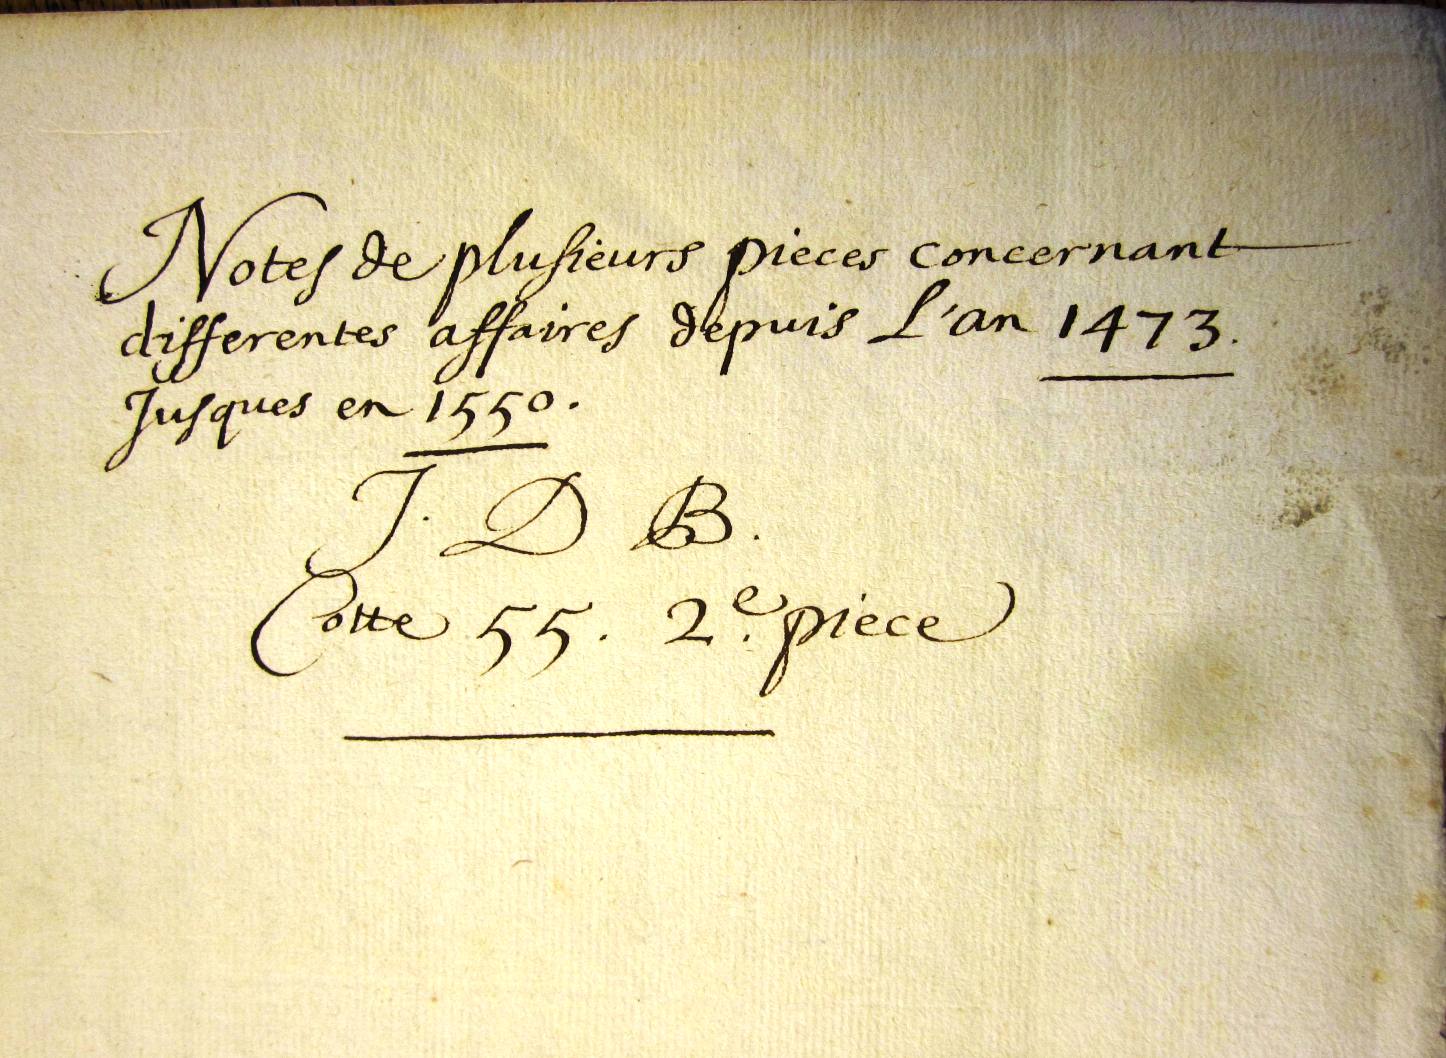 Notes de plusieurs pieces concernant
differentes affaires depuis L'an 1473.
Jusques en 1550.
J. D B.
Cotte 55. 2e. piece